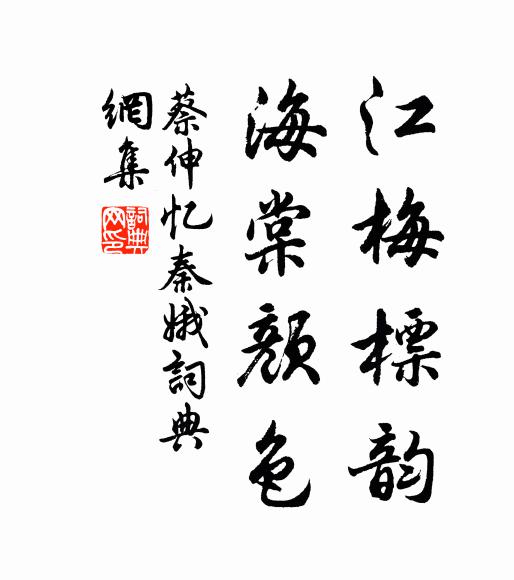 江梅標韵
海棠顏色
蔡伸忆秦娥詞典
網集
詞典
网印